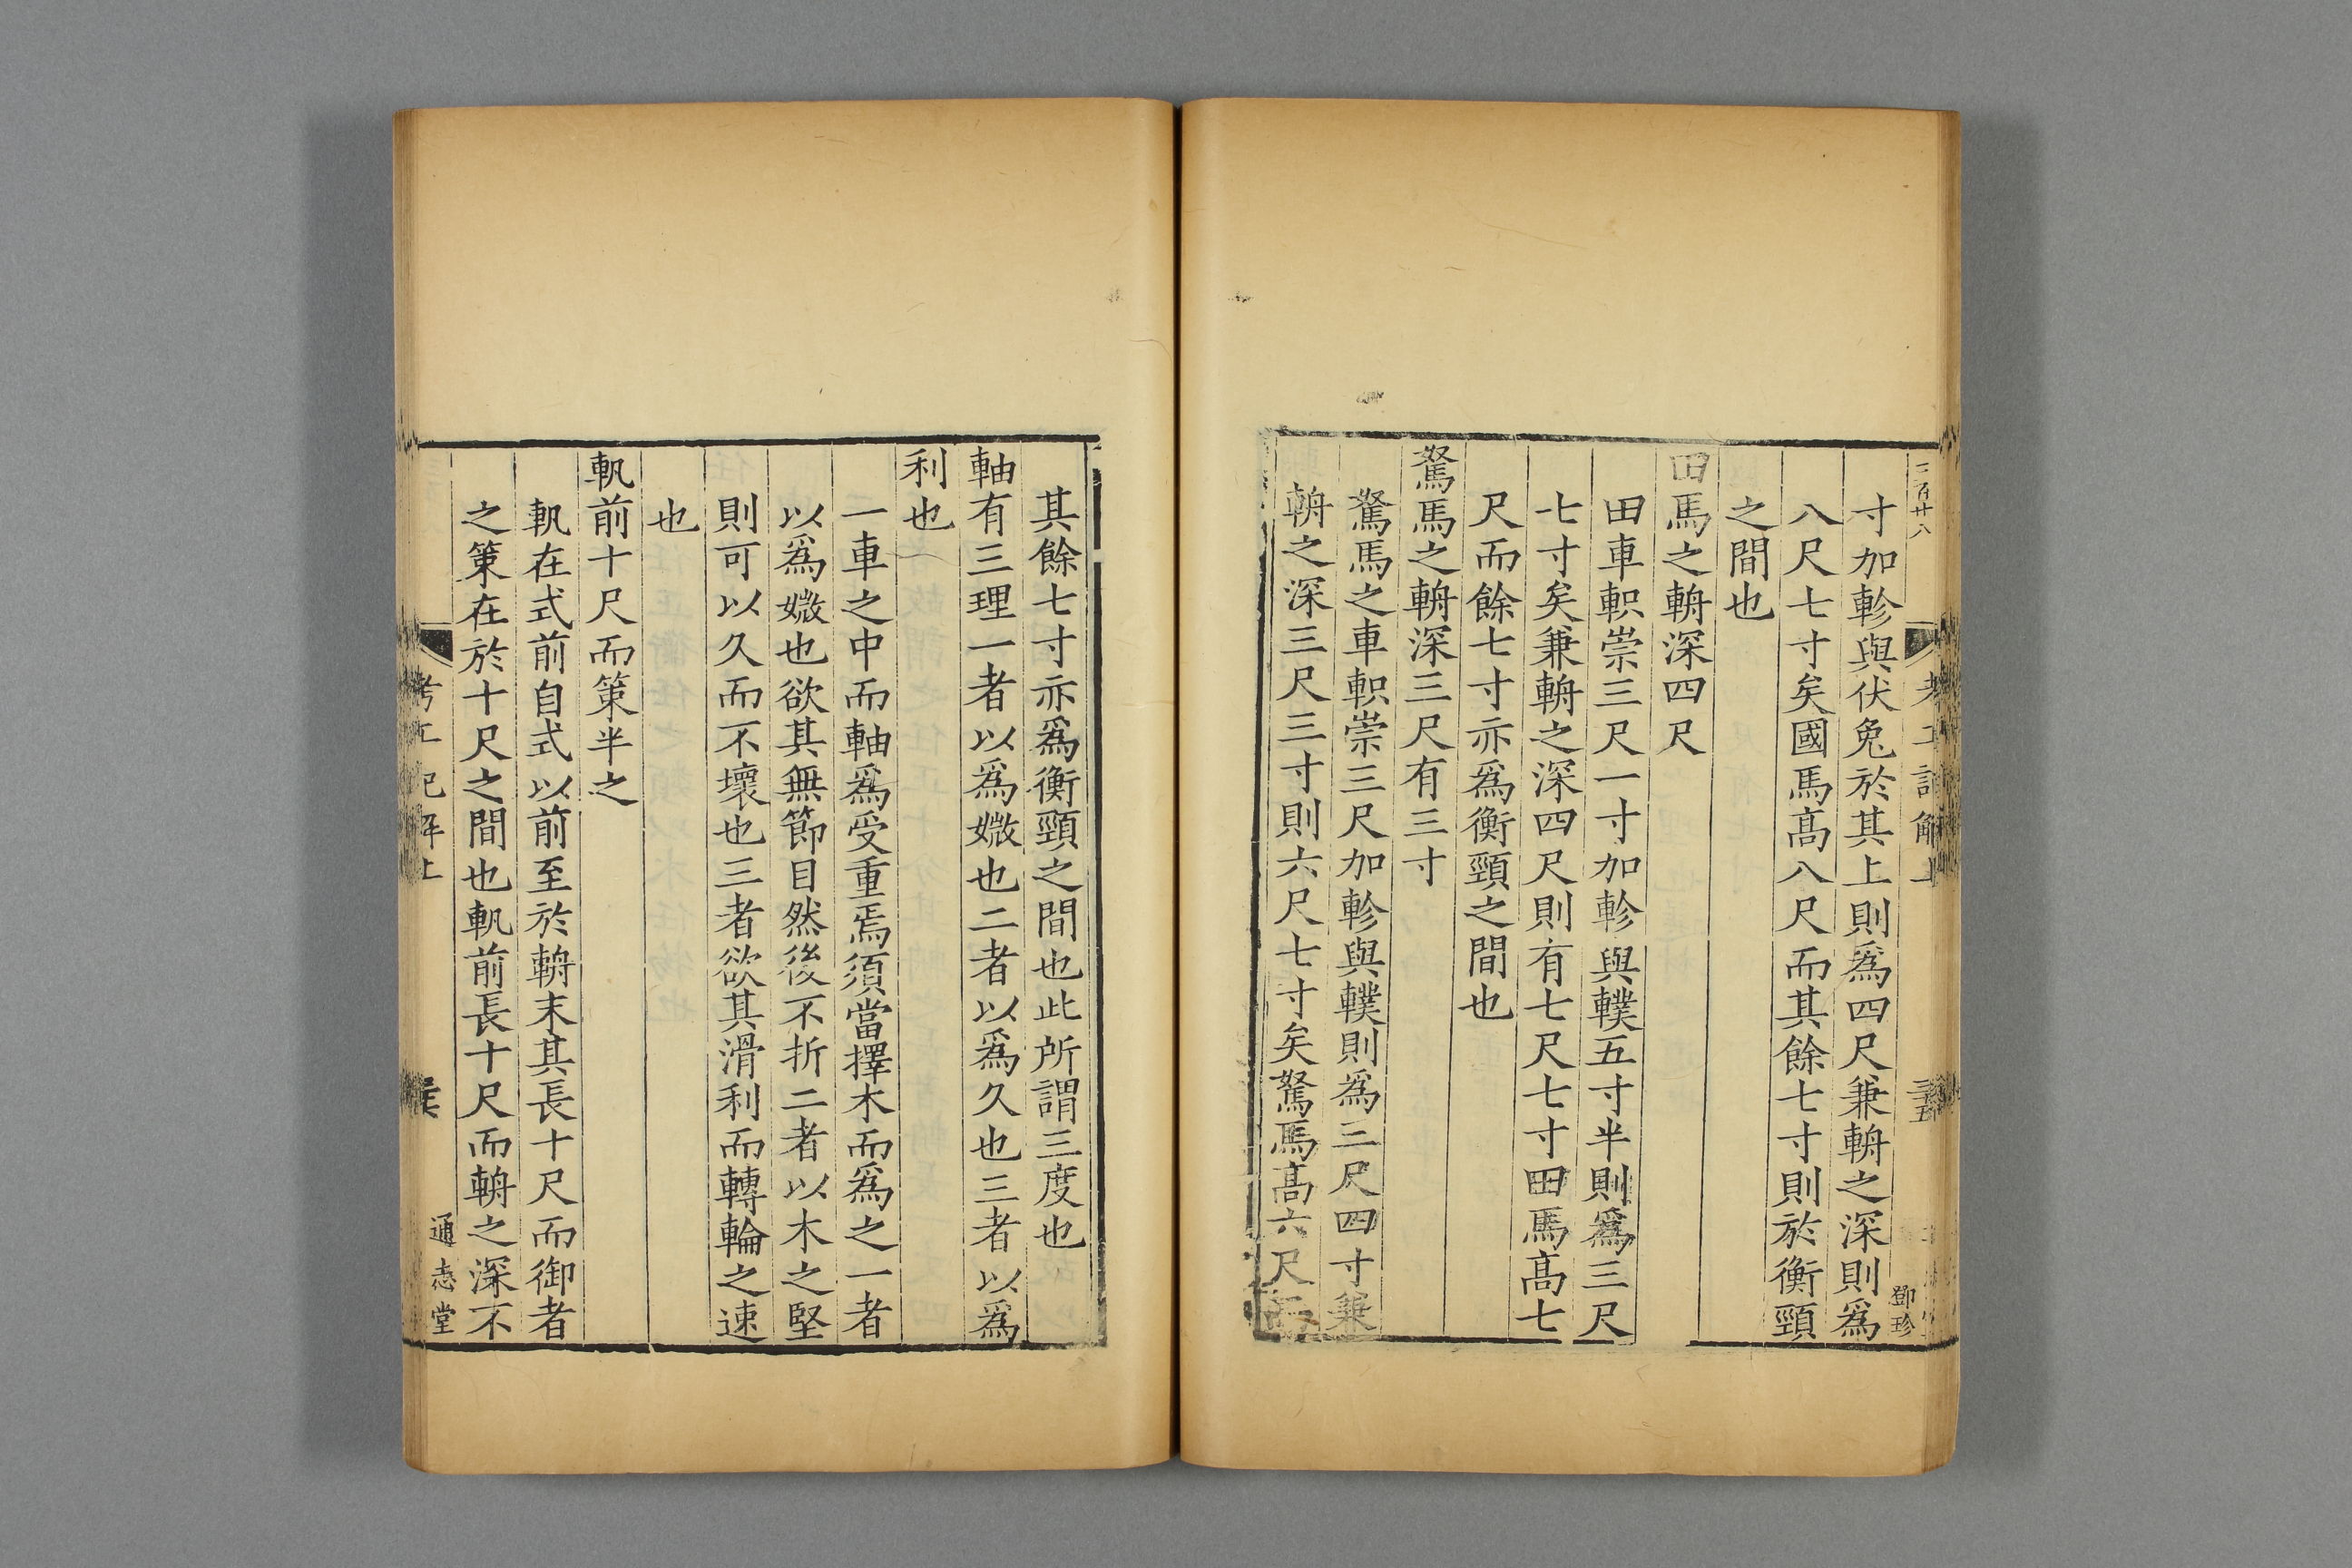 二百廿八
考工記解上
三五
鄧珍
寸加軫與伏兔於其上則爲四尺兼輈之深則爲
八尺七寸矣國馬髙八尺而其餘七寸則於衡頸
之間也
田馬之輈深四尺
田車軹崇三尺一寸加軫與轐五寸半則爲三尺
七寸矣兼輈之深四尺則有七尺七寸田馬髙七
尺而餘七寸亦爲衡頸之間也
駑馬之輈深三尺有三寸
駑馬之車軹崇三尺加軫與轐則爲三尺四寸兼
輈之深三尺三寸則六尺七寸矣駑馬髙六尺而
其餘七寸亦爲衡頸之間也此所謂三度也
軸有三理一者以爲媺也二者以爲久也三者以爲
利也
一車之中而軸爲受重焉須當擇木而爲之一者
以爲媺也欲其無節目然後不折二者以木之堅
則可以久而不壞也三者欲其滑利而轉輪之速
也
軓前十尺而策半之
軓在式前自式以前至於輈末其長十尺而御者
之策在於十尺之間也軓前長十尺而輈之深不
考工記解上
通志堂